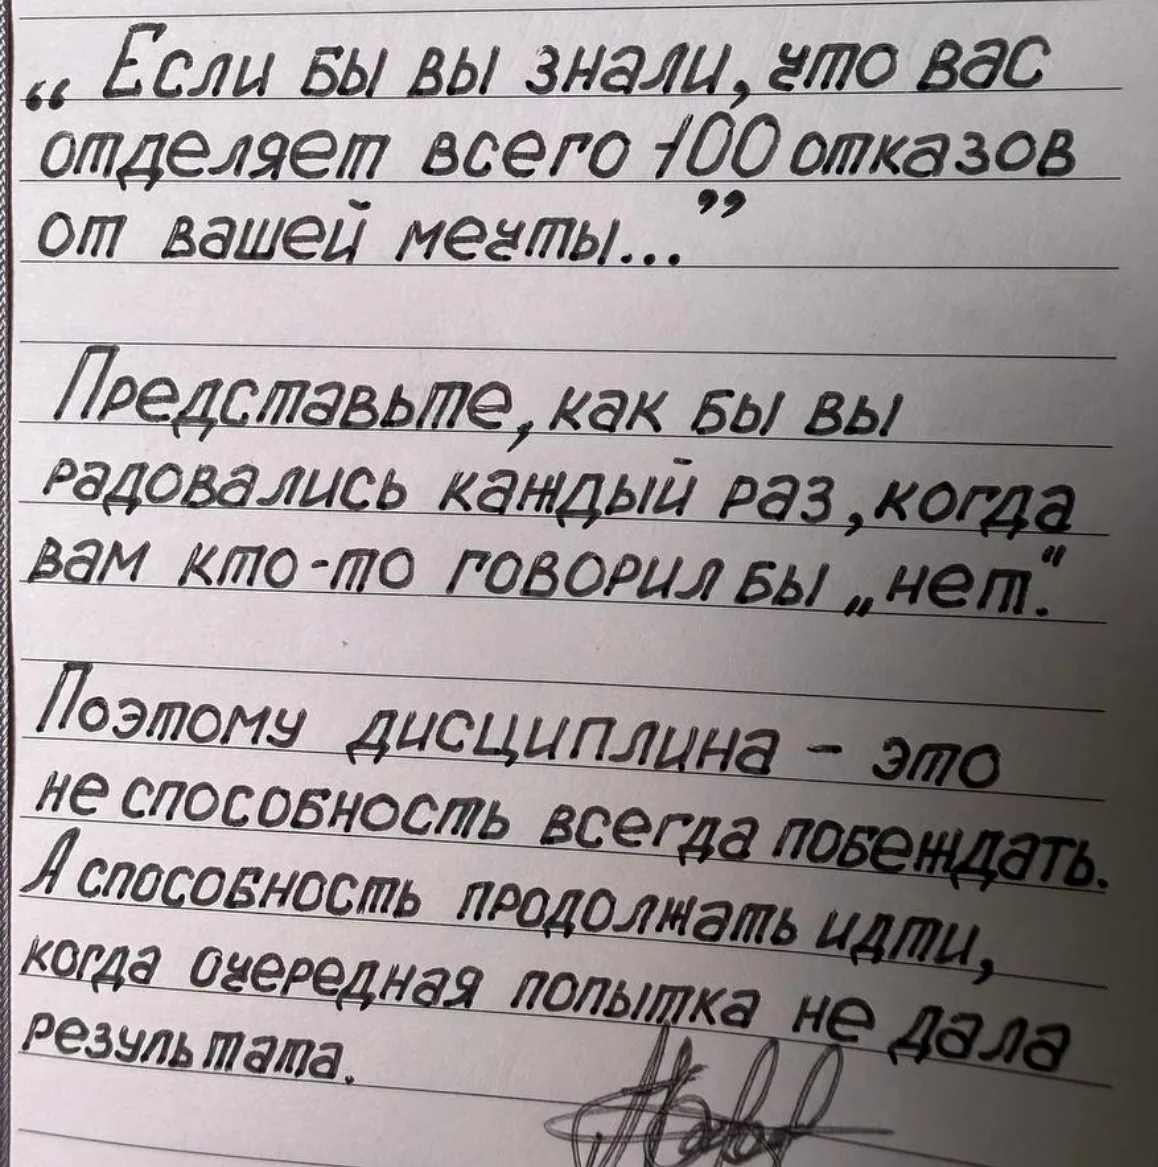 “Если бы вы знали, что вас
отделяет всего 100 отказов
от вашей мечты...”
Представьте, как бы вы
радовались каждый раз, когда
вам кто-то говорил бы „нет“.
Поэтому дисциплина – это
не способность всегда побеждать.
А способность продолжать идти,
когда очередная попытка не дала
результата.